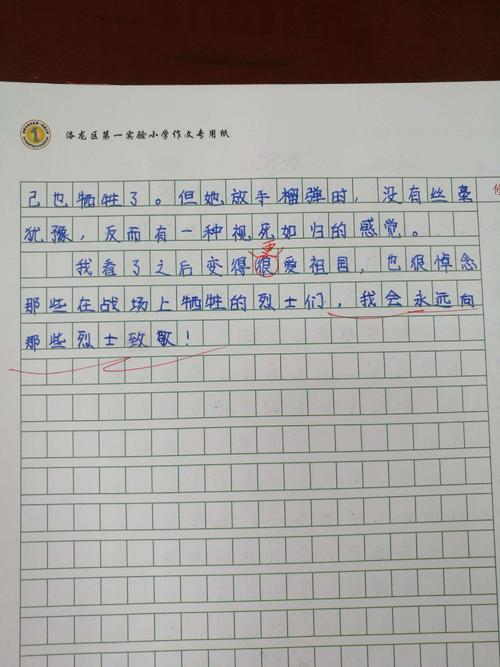 洛龙区第一实验小学作文专用纸
己也牺牲了。但她放手榴弹时，没有丝毫
犹豫，反而有一种视死如归的感觉。
更
我看了之后变得很爱祖国，也很悼念
那些在战场上牺牲的烈士们，我会永远向
那些烈士致敬！